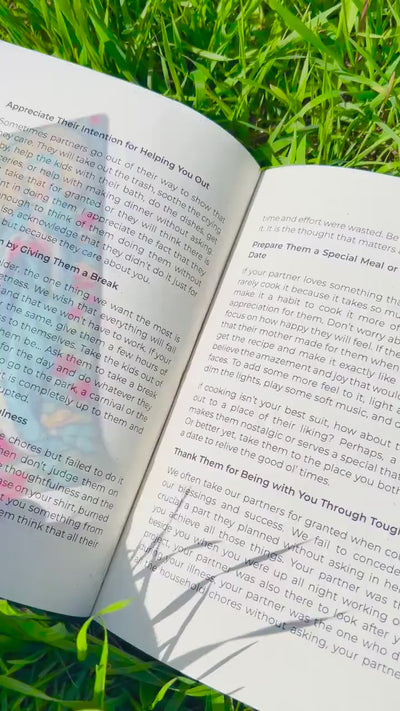 Appreciate Their Intention for Helping You Out
Sometimes partners go out of their way to show that
y care. They will take out the trash, soothe the crying
by, help the kids with their bath, do the dishes, get
eries, or help with making dinner without asking.
take that for granted or they will think there is
nt in doing them - appreciate the fact that they
hough to think of doing them without
so, acknowledge that they didn't do it just for
out because they care about you.
n by Giving Them a Break
ider, the one thing we want the most is
We wish that everything will fall
and that we won't have to work. If your
the same, give them a few hours of
to themselves. Take the kids out of
for the day, and do whatever they
go to the park, a carnival or the
is completely up to them and
sted.
ulness
e chores but failed to do it
hen don't judge them on
e thoughtfulness and the
ase on your shirt, burned
t you something from
em think that all their
time and effort were wasted. Be
it. It is the thought that matters
Prepare Them a Special Meal or
Date
If your partner loves something tha
rarely cook it because it takes so mu
make it a habit to cook it more o
appreciation for them. Don't worry ab
focus on how happy they will feel. If the
that their mother made for them when
get the recipe and make it exactly like
believe the amazement and joy that would
faces. To add some more feel to it, light a
dim the lights, play some soft music, and d
If cooking isn't your best suit, how about
out to a place of their liking? Perhaps, a
makes them nostalgic or serves a special that
Or better yet, take them to the place you both
a date to relive the good ol' times.
Thank Them for Being with You Through Tough
We often take our partners for granted when cou
our blessings and success. We fail to concede
crucial part they planned without asking in he
you achieve all those things. Your partner was th
beside you when you were up all night working o
Your partner was also there to look after y
your illness, your partner was the one who d
the household chores without asking, your partne